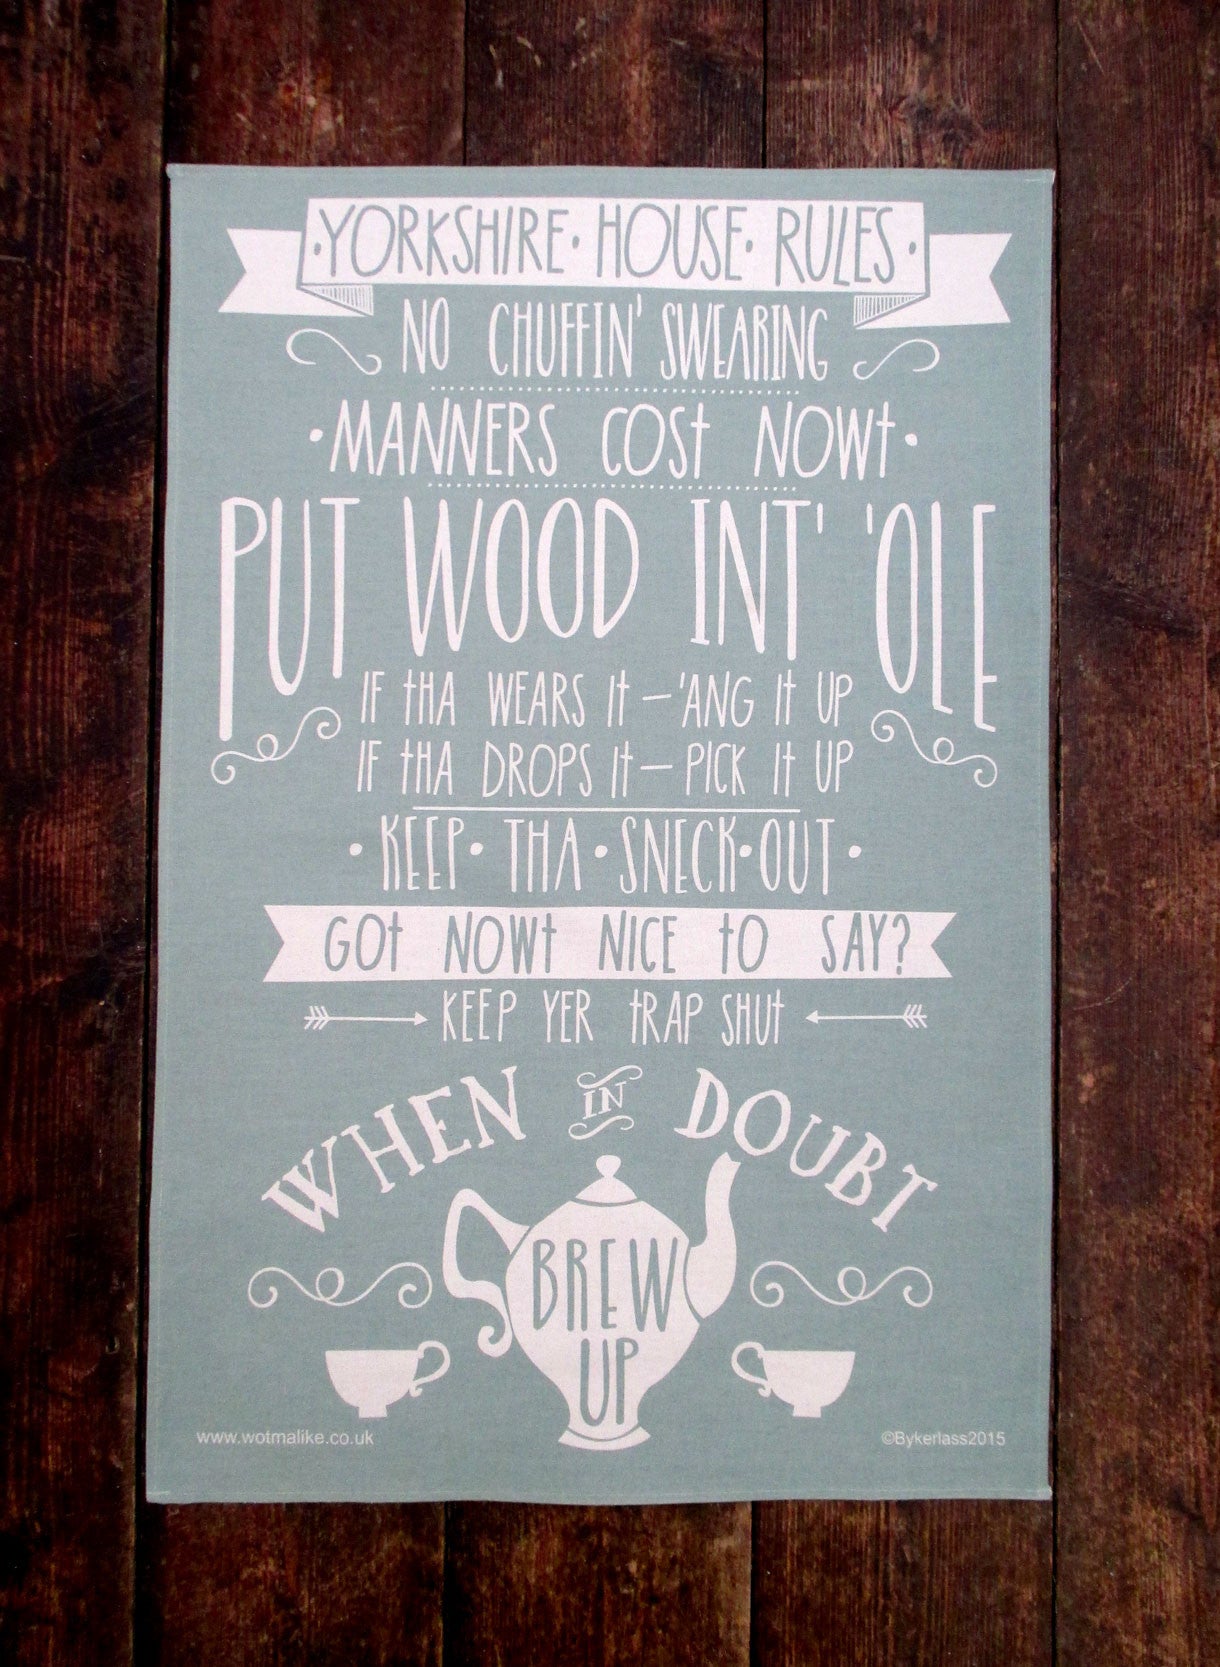 ·YORKSHIRE· HOUSE· RULES·
NO CHUFFIN' SWEARING
·MANNERS COST NOWT·
PUT WOOD INT' 'OLE
IF THA WEARS IT – 'ANG IT UP
IF THA DROPS IT – PICK IT UP
·KEEP· THA ·SNECK·OUT·
GOT NOWT NICE TO SAY?
KEEP YER TRAP SHUT
WHEN IN DOUBT
BREW
UP
www.wotmalike.co.uk
©Bykerlass2015